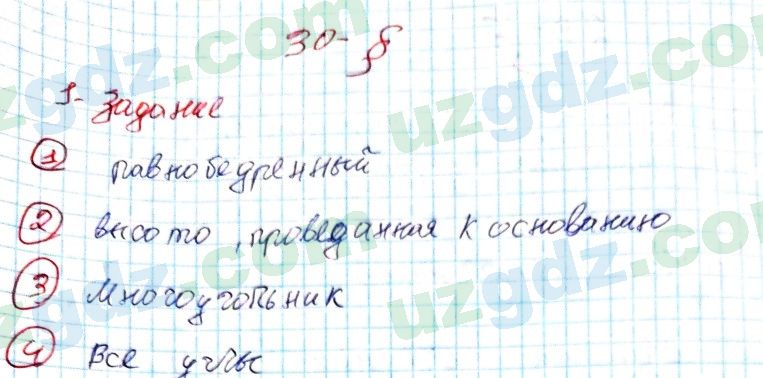 30-§
1- Задание
1 равнобедренный
2 высота, проведанная к основанию
3 Многоугольник
4 Все углы